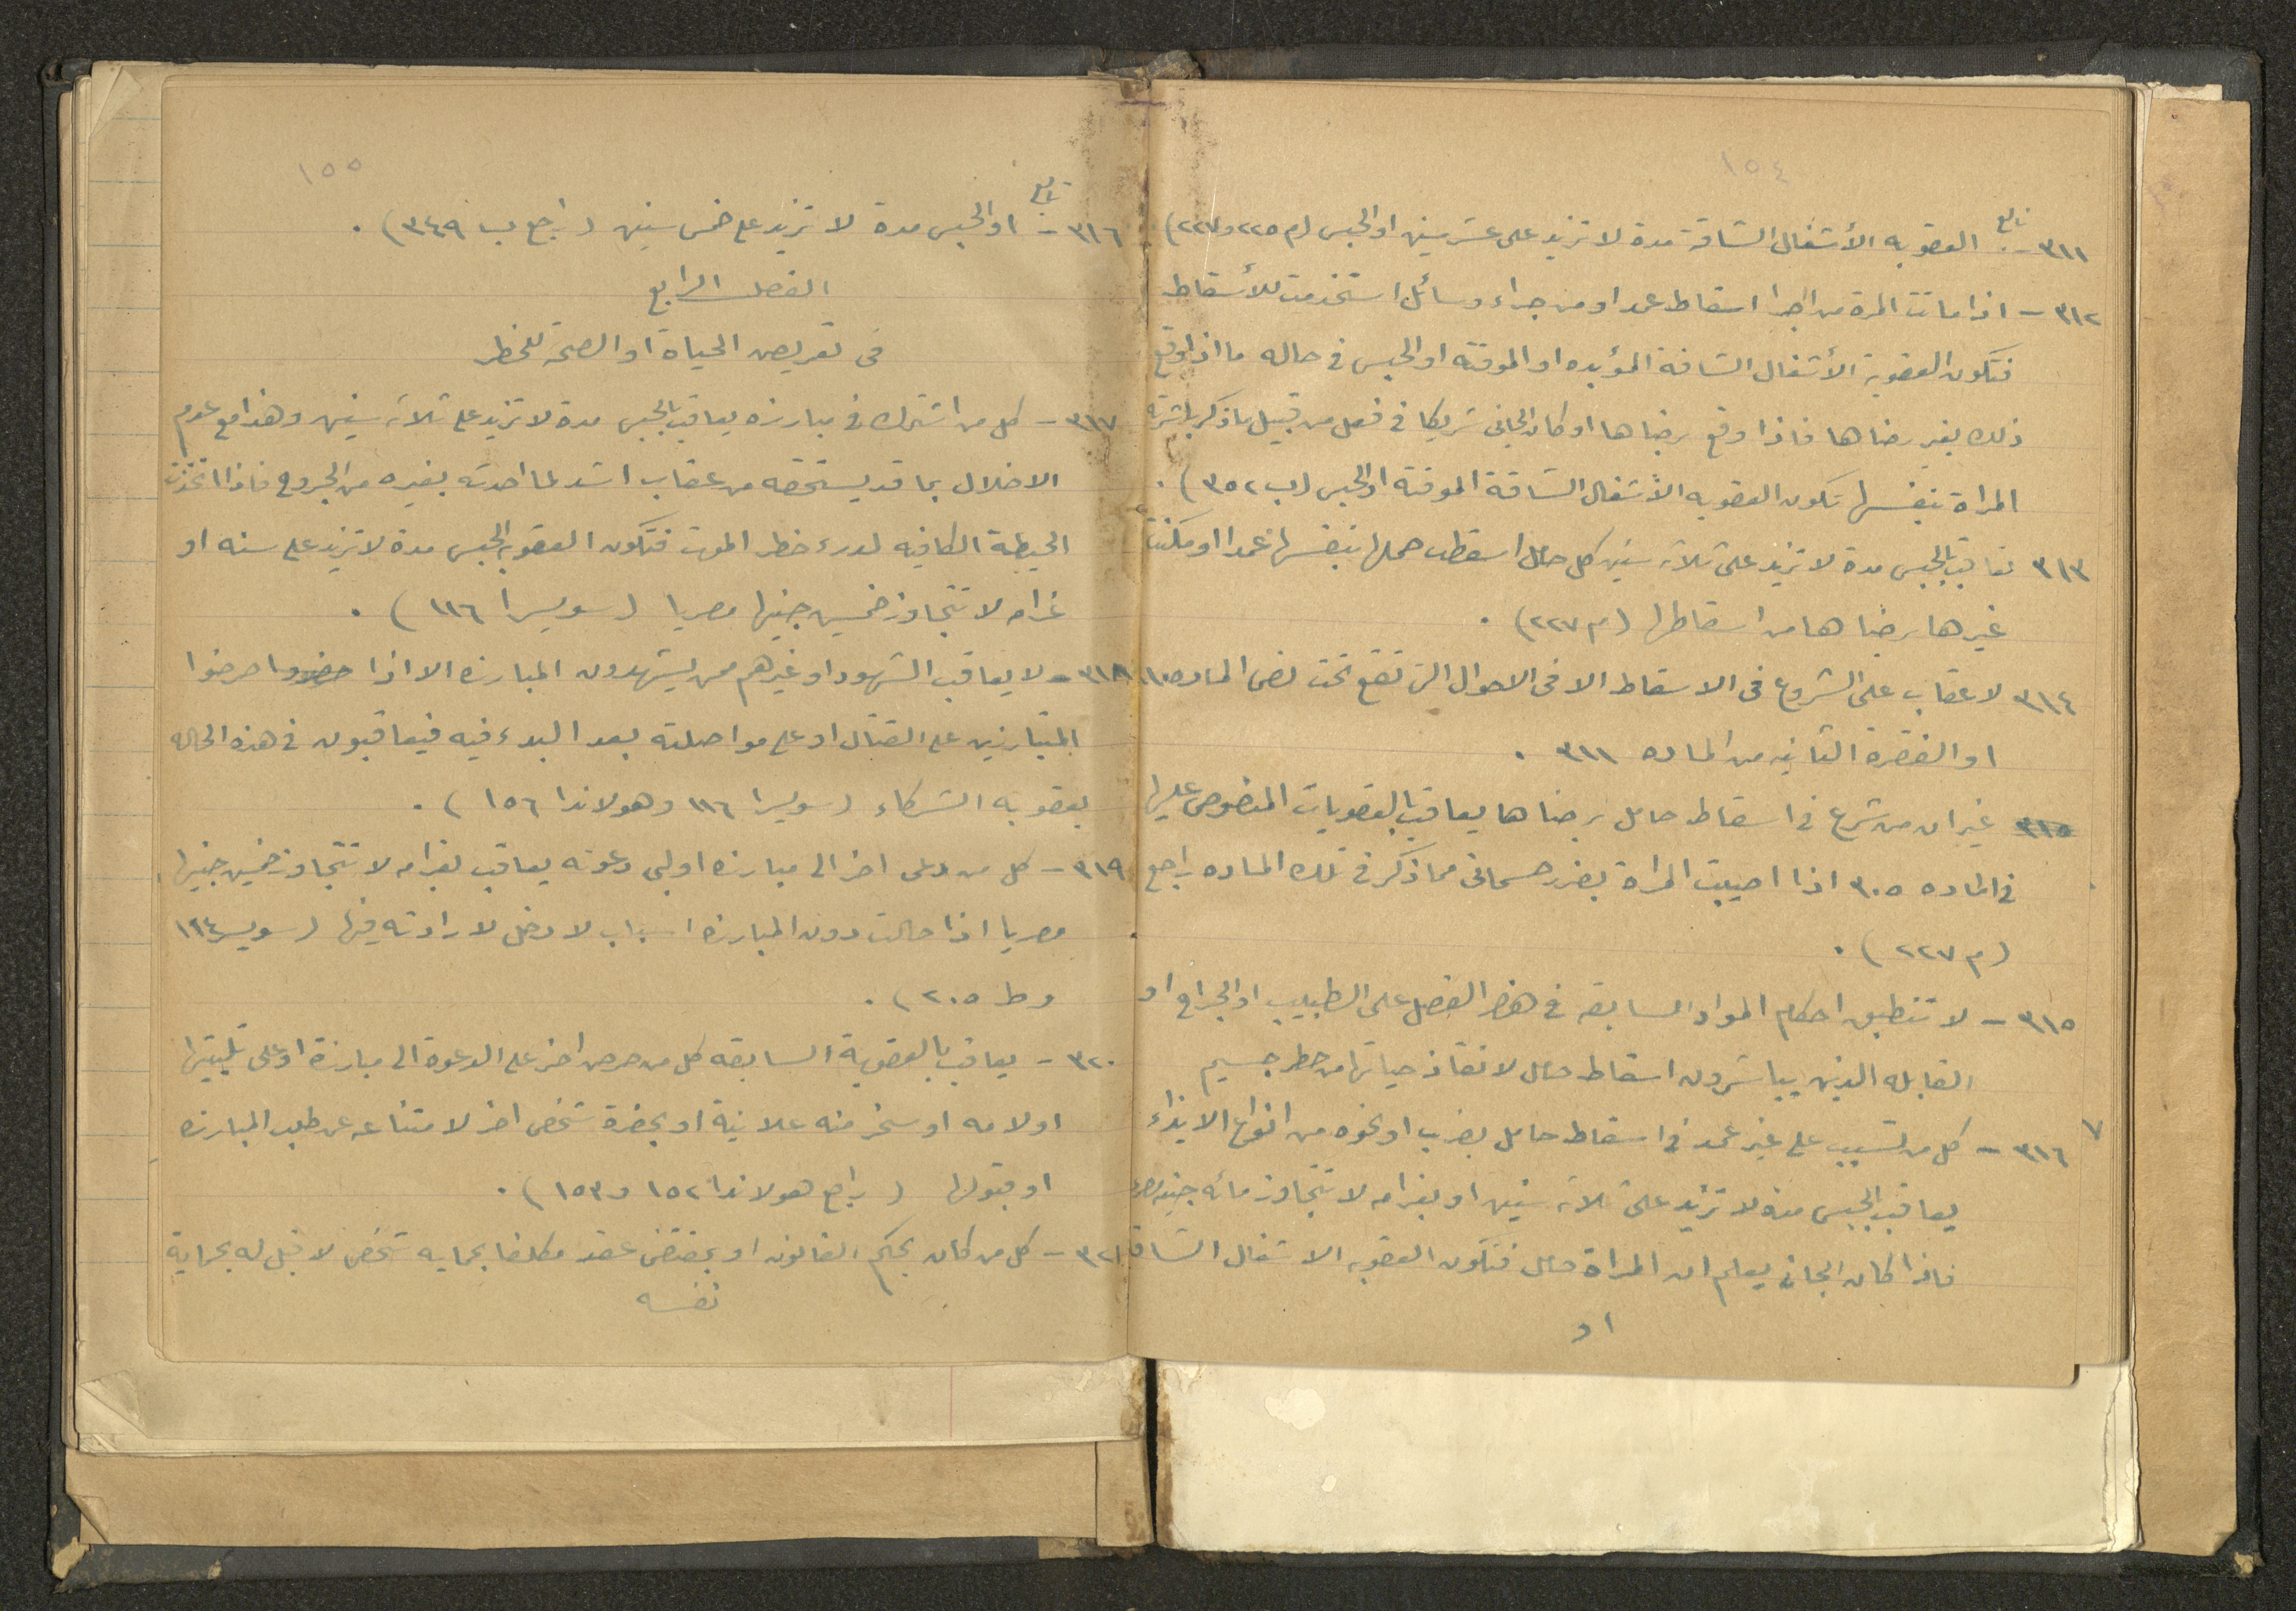 ١٥٤
تابع
٣١١ - العقوبه الأشغال الشاقة مدة لا تزيد على عشر سنين او الحبس (م ٢٢٥ و ٢٢٧)
٣١٢ - اذا ماتت المرة من اجرا اسقاط عمدا او من جراء وسائل استخدمت للأسقاط
فتكون العقوبة الأشغال الشاقة المؤبده او الموقتة او الحبس فى حاله ما اذا وقع
ذلك بغير رضاها فاذا وقع برضاها او كان الجانى شريكا فى فعل من قبيل ما ذكر باشرته
المراة بنفسها تكون العقوبه الأشغال الشاقة الموقتة او الحبس (ب ٣٥٢) .
٣١٣ تعاقب بالحبس مدة لا تزيد على ثلاثه سنين كل حامل اسقطت حملها بنفسها عمدا او مكنت
غيرها برضاها من اسقاطها (م ٢٢٧) .
٣١٤ لا عقاب على الشروع فى الاسقاط الا فى الاحوال التى تقع تحت نص الماده ٣١٠
او الفقرة الثانيه من الماده ٣١١ .
٣١٥ غير ان من شرع فى اسقاط حامل برضاها يعاقب بالعقوبات المنصوص عليها
فى الماده ٣٠٥ اذا اصيبت المراة بضرر جسمانى مما ذكر فى تلك الماده راجع
(م ٢٢٧) .
٣١٥ - لا تنطبق احكام المواد السابقه فى هذا الفصل على الطبيب او الجراح او
القابله الذين يباشرون اسقاط حامل لانقاذ حياتها من خطر جسيم
٧
٣١٦ - كل من تسبب على غير عمد فى اسقاط حامل بضرب او نحوه من انواع الايذاء
يعاقب بالحبس مدة لا تزيد على ثلاثه سنين او بغرامه لا تتجاوز مائه جنيه مصرى
فاذا كان الجانى يعلم ان المراة حامل فتكون العقوبه الاشغال الشاقة
او
١٥٥
تابع
٣١٦ - او الحبس مدة لا تزيد على خمس سنين (راجع ب ٣٤٩) .
الفصل الرابع
فى تعريض الحياة او الصحة للخطر
٣١٧ - كل من اشترك فى مبارزه يعاقب بالحبس مدة لا تزيد على ثلاثه سنين وهذا مع عدم
الاخلال بما قد يستحقه من عقاب اشد لما احدثه بغيره من الجروح فاذا اتخذت
الحيطة الكافيه لدرء خطر الموت فتكون العقوبه الحبس مدة لا تزيد على سنه او
غرامه لا تتجاوز خمسين جنيها مصريا (سويسرا ١١٦) .
٣١٨ - لا يعاقب الشهود او غيرهم ممن يشهدون المبارزه الا اذا حضروا حرضوا
المتبارزين على القتال او على مواصلته بعد البدء فيه فيعاقبون فى هذه الحاله
بعقوبه الشركاء (سويسرا ١١٦ وهولاندا ١٥٦) .
٣١٩ - كل من دعى اخر الى مبارزه او لبى دعوته يعاقب بغرامه لا تتجاوز خمسين جنيها
مصريا اذا حالت دون المبارزه اسباب لا دخل لارادته فيها (سويسر ١١٤
وط ٢٠٥) .
٣٢٠ - يعاقب بالعقوبة السابقه كل من حرض اخر على الدعوة الى مبارزة او على تلبيتها
او لامه او سخر منه علانية او بحضرة شخص اخر لامتناعه عن طلب المبارزه
او قبولها (راجع هولاندا ١٥٢ و ١٥٣) .
٣٢١ - كل من كان بحكم القانون او بمقتضى عقد مكلفا بحمايه شخص لا قبل له بحماية
نفسه